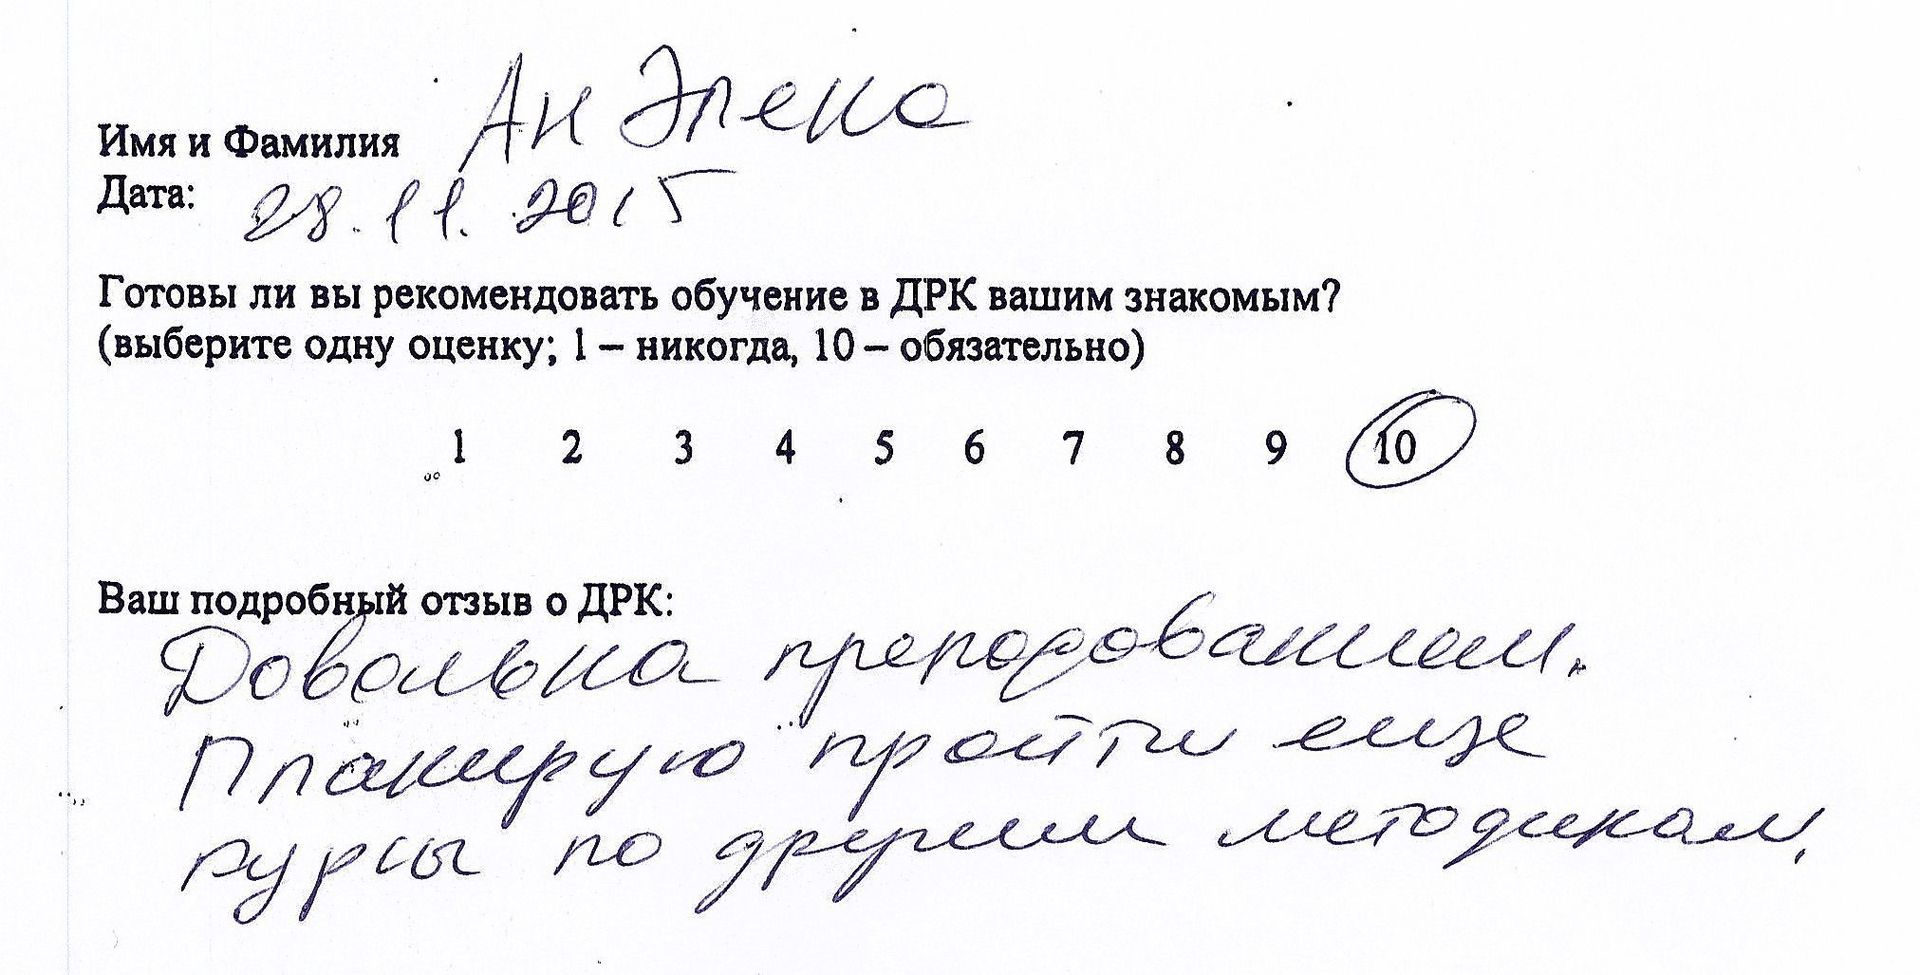 Имя и Фамилия Ан Элена
Дата: 28.11.2015
Готовы ли вы рекомендовать обучение в ДРК вашим знакомым?
(выберите одну оценку; 1 – никогда, 10 – обязательно)
1 2 3 4 5 6 7 8 9 10
Ваш подробный отзыв о ДРК:
Довольна преподаванием.
Планирую пройти еще
курсы по другим методикам.